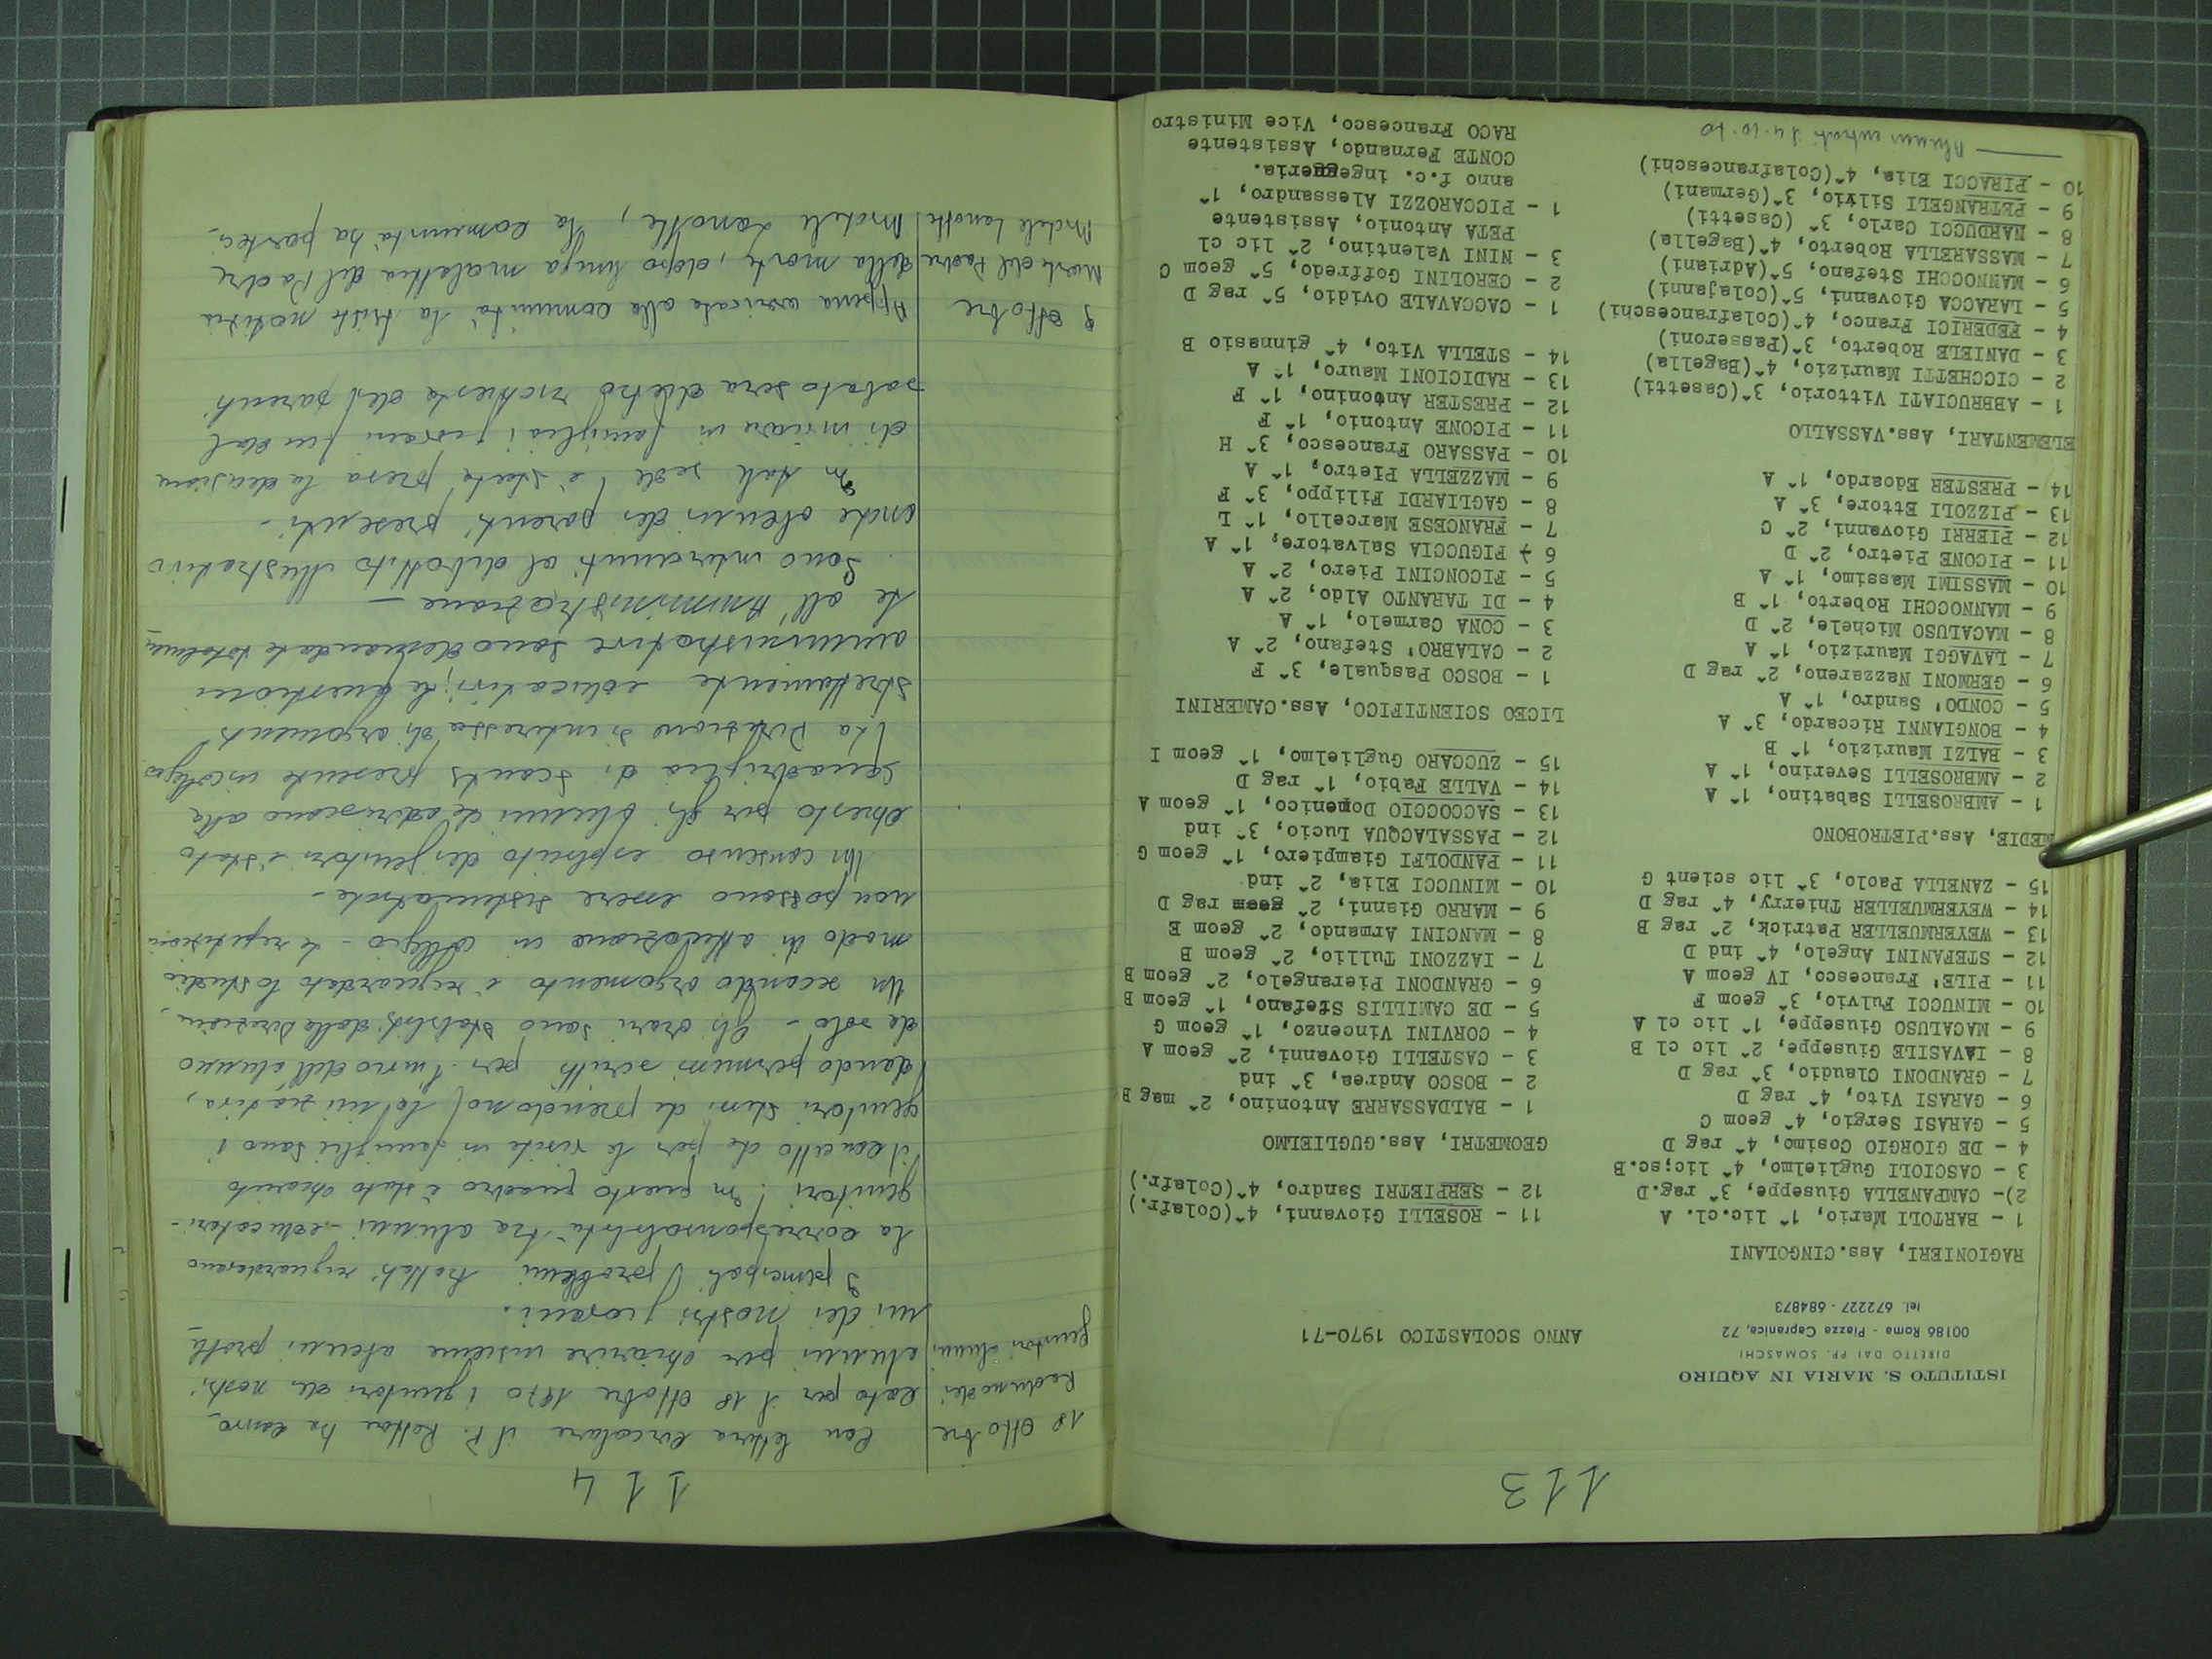 113
ISTITUTO S. MARIA IN AQUIRO
DIRETTO DAI PP. SOMASCHI
00186 Roma - Piazza Capranica, 72
tel. 672227 - 684873
ANNO SCOLASTICO 1970-71
RAGIONIERI, Ass. CINGOLANI
1 - BARTOLI Mario, 1^ lic.cl. A
2)- CAMPANELLA Giuseppe, 3^ rag.D
3 - CASCIOLI Guglielmo, 4^ lic;sc.B
4 - DE GIORGIO Cosimo, 4^ rag D
5 - GARASI Sergio, 4^ geom C
6 - GARASI Vito, 4^ rag D
7 - GRANDONI Claudio, 3^ rag D
8 - IAVASILE Giuseppe, 2^ lic cl B
9 - MACALUSO Giuseppe, 1^ lic cl A
10 - MINUCCI Fulvio, 3^ geom F
11 - PILE' Francesco, IV geom A
12 - STEFANINI Angelo, 4^ ind D
13 - WEYERMUELLER Patrick, 2^ rag B
14 - WEYERMUELLER Thierry, 4^ rag D
15 - ZANELLA Paolo, 3^ lic scient G
MEDIE, Ass.PIETROBONO
1 - AMBROSELLI Sabatino, 1^ A
2 - AMBROSELLI Severino, 1^ A
3 - BALZI Maurizio, 1^ B
4 - BONGIANNI Riccardo, 3^ A
5 - CONDO' Sandro, 1^ A
6 - GERMONI Nazzareno, 2^ rag D
7 - LAVAGGI Maurizio, 1^ A
8 - MACALUSO Michele, 2^ D
9 - MANNOCCHI Roberto, 1^ B
10 - MASSIMI Massimo, 1^ A
11 - PICONE Pietro, 2^ D
12 - PIERRI Giovanni, 2^ C
13 - PIZZOLI Ettore, 3^ A
14 - PRESTER Edoardo, 1^ A
ELEMENTARI, Ass.VASSALLO
1 - ABBRUCIATI Vittorio, 3^(Casetti)
2 - CICCHETTI Maurizio, 4^(Bagella)
3 - DANIELE Roberto, 3^(Passeroni)
4 - FEDERICI Franco, 4^(Colafranceschi)
5 - LARACCA Giovanni, 5^(Colajanni)
6 - MANNOCCHI Stefano, 5^(Adriani)
7 - MASSARELLA Roberto, 4^(Bagella)
8 - NARDUCCI Carlo, 3^ (Casetti)
9 - PETRANGELI Silvio, 3^(Germani)
10 - PIRACCI Elia, 4^(Colafranceschi)
Alunni entrati il 4-10-70
11 - ROSELLI Giovanni, 4^(Colafr.)
12 - SERPIETRI Sandro, 4^(Colafr.)
GEOMETRI, Ass.GUGLIELMO
1 - BALDASSARRE Antonino, 2^ mag B
2 - BOSCO Andrea, 3^ ind
3 - CASTELLI Giovanni, 2^ geom A
4 - CORVINI Vincenzo, 1^ geom G
5 - DE CAMILLIS Stefano, 1^ geom B
6 - GRANDONI Pierangelo, 2^ geom B
7 - IAZZONI Tullio, 2^ geom B
8 - MANCINI Armando, 2^ geom E
9 - MARRO Gianni, 2^ geom rag D
10 - MINUCCI Elia, 2^ ind
11 - PANDOLFI Giampiero, 1^ geom G
12 - PASSALACQUA Lucio, 3^ ind
13 - SACCOCCIO Domenico, 1^ geom A
14 - VALLE Fabio, 1^ rag D
15 - ZUCCARO Guglielmo, 1^ geom I
LICEO SCIENTIFICO, Ass.CAMERINI
1 - BOSCO Pasquale, 3^ F
2 - CALABRO' Stefano, 2^ A
3 - CONA Carmelo, 1^ A
4 - DI TARANTO Aldo, 2^ A
5 - FICONCINI Piero, 2^ A
6 - FIGUCCIA Salvatore, 1^ A
7 - FRANCESE Marcello, 1^ L
8 - GAGLIARDI Filippo, 3^ F
9 - MAZZELLA Pietro, 1^ A
10 - PASSARO Francesco, 3^ H
11 - PICONE Antonio, 1^ F
12 - PRESTER Antonino, 1^ F
13 - RADICIONI Mauro, 1^ A
14 - STELLA Vito, 4^ ginnasio B
1 - CACCAVALE Ovidio, 5^ rag D
2 - CEROLINI Goffredo, 5^ geom C
3 - NINI Valentino, 2^ lic cl
PETA Antonio, Assistente
1 - PICCAROZZI Alessandro, 1^
anno f.c. ingegneria.
CONTE Fernando, Assistente
RACO Francesco, Vice Ministro
114
18 Ottobre
Raduno dei
genitori alunni
Con lettera circolare il P. Rettore ha convo-
cato per il 18 Ottobre 1970 i genitori dei nostri
alunni per chiarire insieme alcuni proble
mi dei nostri giovani.
I principali problemi trattati riguardavano
la corresponsabilità tra alunni - educatori -
genitori. In questo quadro è stato chiarito
il concetto che per le visite in famiglia sono i
genitori stessi che prendono l'iniziativa,
dando permessi scritti per l'uscita dell'alunno
da solo - Gli orari sono stabiliti dalla Direzione.
Un secondo argomento è riguardato lo studio
modo di attuazione in collegio - le ripetizioni
non possono essere sistematiche -
Un consenso esplicito dei genitori è stato
chiesto per gli alunni che aderiscono alla
squadriglia di Scouts presente in collegio.
La Direzione s'interessa di argomenti
strettamente educativi; le questioni
amministrative sono demandate totalmen-
te all'Amministrazione -
Sono intervenuti al dibattito illustrativo
anche alcuni dei parenti presenti -
In tale sede è stata presa la decisione
di inviare in famiglia i giovani fin dal
sabato sera dietro richiesta dei parenti.
9 Ottobre
Morte del Padre
Michele Lanotte
Appena arrivata alla comunità la triste notizia
della morte, dopo lunga malattia del Padre
Michele Lanotte, la comunità ha parteci-